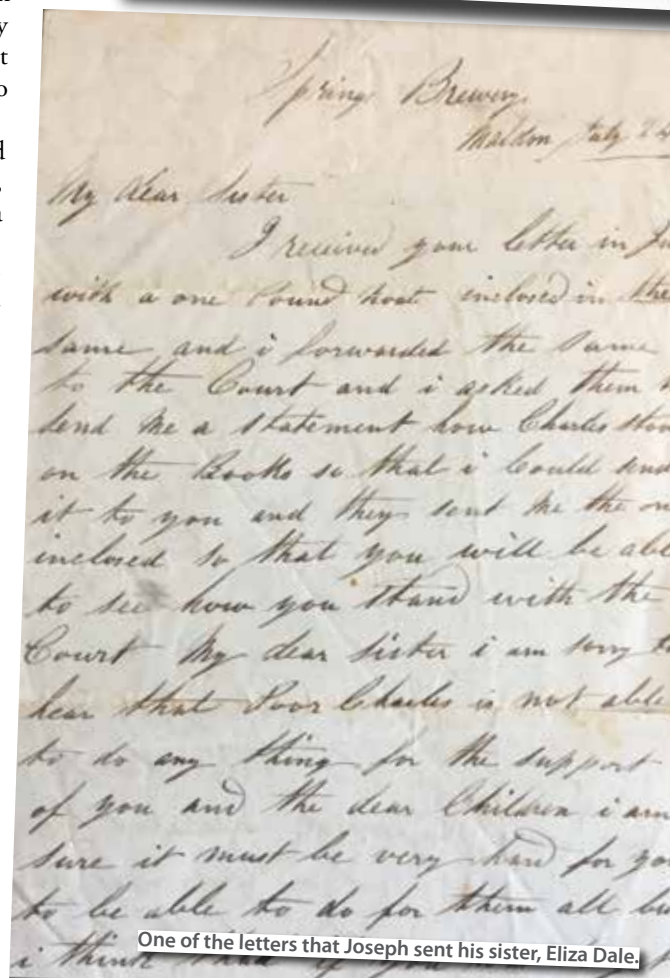 Spring Brewery
Maldon July 24
My dear Sister
I received your letter in Ju
with a one Pound noat inclosed in the
same and i forwarded the same
to the Court and i asked them
send me a statement how Charles stoo
on the Books so that i Could send
it to you and they sent me the on
inclosed so that you will be abl
to see how you stand with the
Court My dear sister i am sorry to
hear that Poor Charles is not able
to do any thing for the support
of you and the dear Children i am
sure it must be very hard for yo
to be able to do for them all bu
i think
One of the letters that Joseph sent his sister, Eliza Dale.